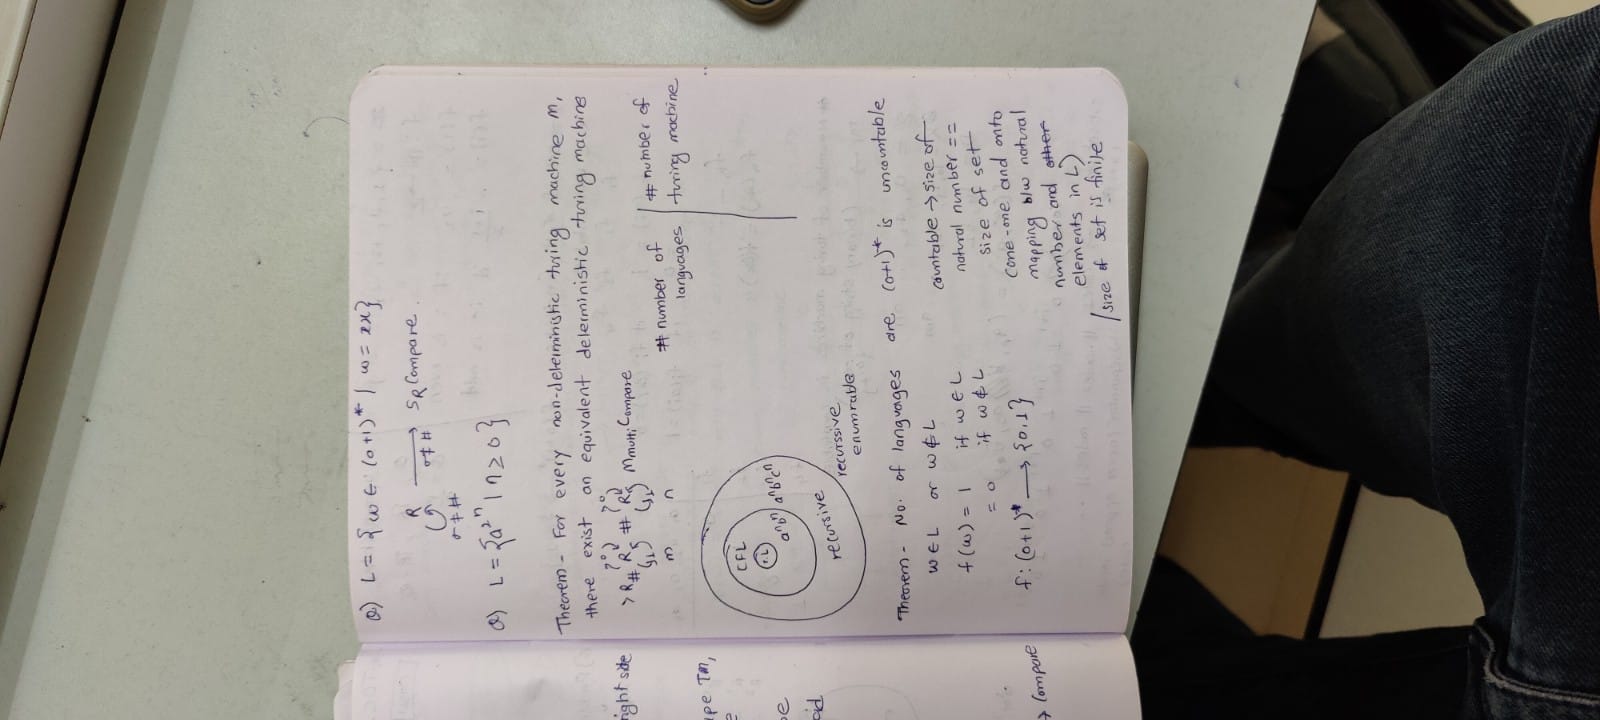 Q) L = { w ∈ (0+1)* | w = xx }
R
σ≠# σ≠# S_R Compare
Q) L = { a^2^n | n ≥ 0 }
Theorem - For every non-deterministic turing machine M,
there exist an equivalent deterministic turing machine
> R# R # R M_multi Compare
m n
# number of languages | # number of turing machine
CFL
r.L
a^n b^n
a^n b^n c^n
recursive
recurssive
enumrable
Theorem - No. of languages are (0+1)* is uncountable
w ∈ L or w ∉ L
f(w) = 1 if w ∈ L
= 0 if w ∉ L
f : (0+1)* → {0,1}
countable → size of
natural number ==
size of set
(one-one and onto
mapping b/w natural
number and other
elements in L)
/ size of set is finite
right side
ape TM,
Compare